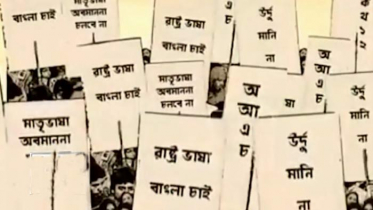 বাংলা চাই
মাতৃভাষা
অবমাননা
চলবে না
রাষ্ট্র ভাষা
বাংলা চাই
উর্দু
মানি
না
রাষ্ট্র ভাষা
বাংলা চাই
মাতৃভাষা
অবমাননা
চলবে না
অ
আ
এ
চ
মাতৃভাষা
অবমাননা
রাষ্ট্র ভাষা
বাংলা চাই
অ
আ
এ
চ
ষা
উর্দু
মানি
না